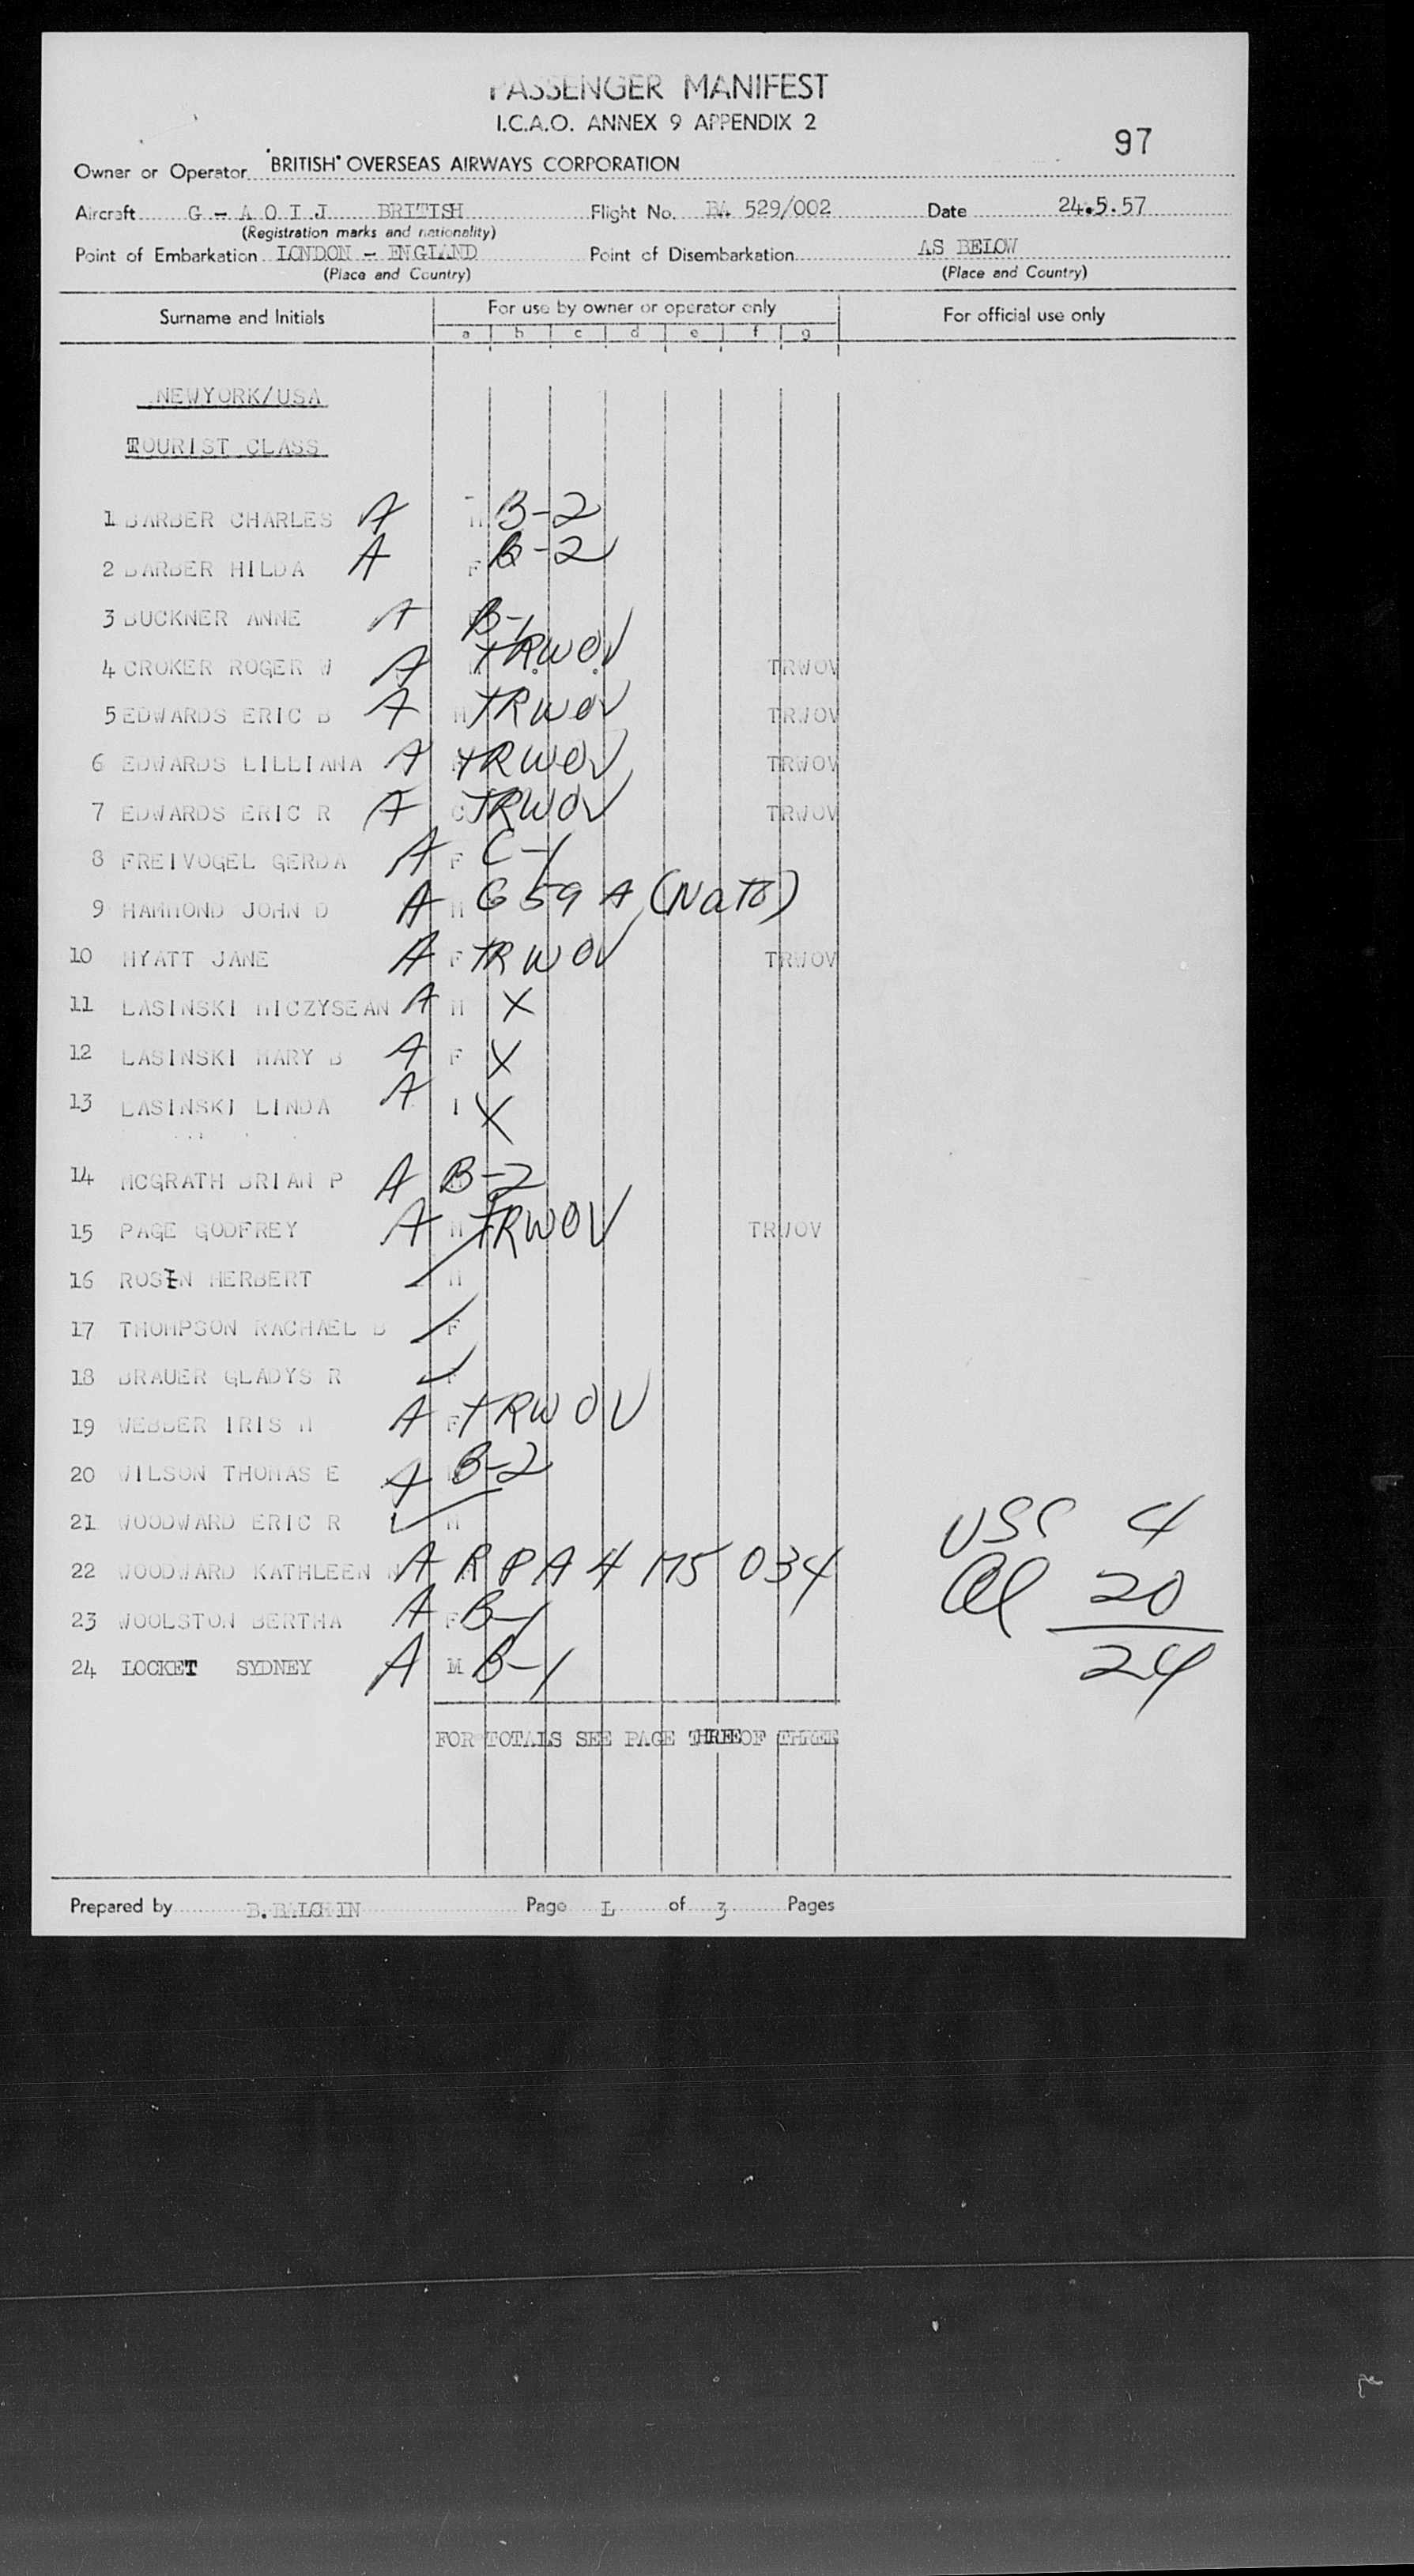 PASSENGER MANIFEST
I.C.A.O. ANNEX 9 APPENDIX 2
97
Owner or Operator BRITISH OVERSEAS AIRWAYS CORPORATION
Aircraft G - A O I J BRITISH Flight No. BA 529/002 Date 24.5.57
(Registration marks and nationality)
Point of Embarkation LONDON - ENGLAND Point of Disembarkation AS BELOW
(Place and Country) (Place and Country)
Surname and Initials For use by owner or operator only For official use only
a b c d e f g
NEWYORK/USA
TOURIST CLASS
1 BARBER CHARLES A M B-2
2 BARBER HILDA A F B-2
3 BUCKNER ANNE A B-1
4 CROKER ROGER W A TRWOV TRWOV
5 EDWARDS ERIC B A M TRWOV TRWOV
6 EDWARDS LILLIANA A TRWOV TRWOV
7 EDWARDS ERIC R A C TRWOV TRWOV
8 FREIVOGEL GERDA A F C-1
9 HAMMOND JOHN D A M G 59 A (Nato)
10 HYATT JANE A F TRWOV TRWOV
11 LASINSKI MICZYSEAN A M X
12 LASINSKI MARY B A F X
13 LASINSKI LINDA A I X
14 MCGRATH BRIAN P A B-2
15 PAGE GODFREY A M TRWOV TRWOV
16 ROSEN HERBERT M
17 THOMPSON RACHAEL B F
18 BRAUER GLADYS R F
19 WEBBER IRIS M A F TRWOV
20 WILSON THOMAS E A B-2
21 WOODWARD ERIC R M
22 WOODWARD KATHLEEN A R P A 4 175 034
23 WOOLSTON BERTHA A F B-1
24 LOCKET SYDNEY A M B-1
USC 4
Al 20
24
FOR TOTALS SEE PAGE THREE OF THREE
Prepared by B. BALCHIN Page L of 3 Pages